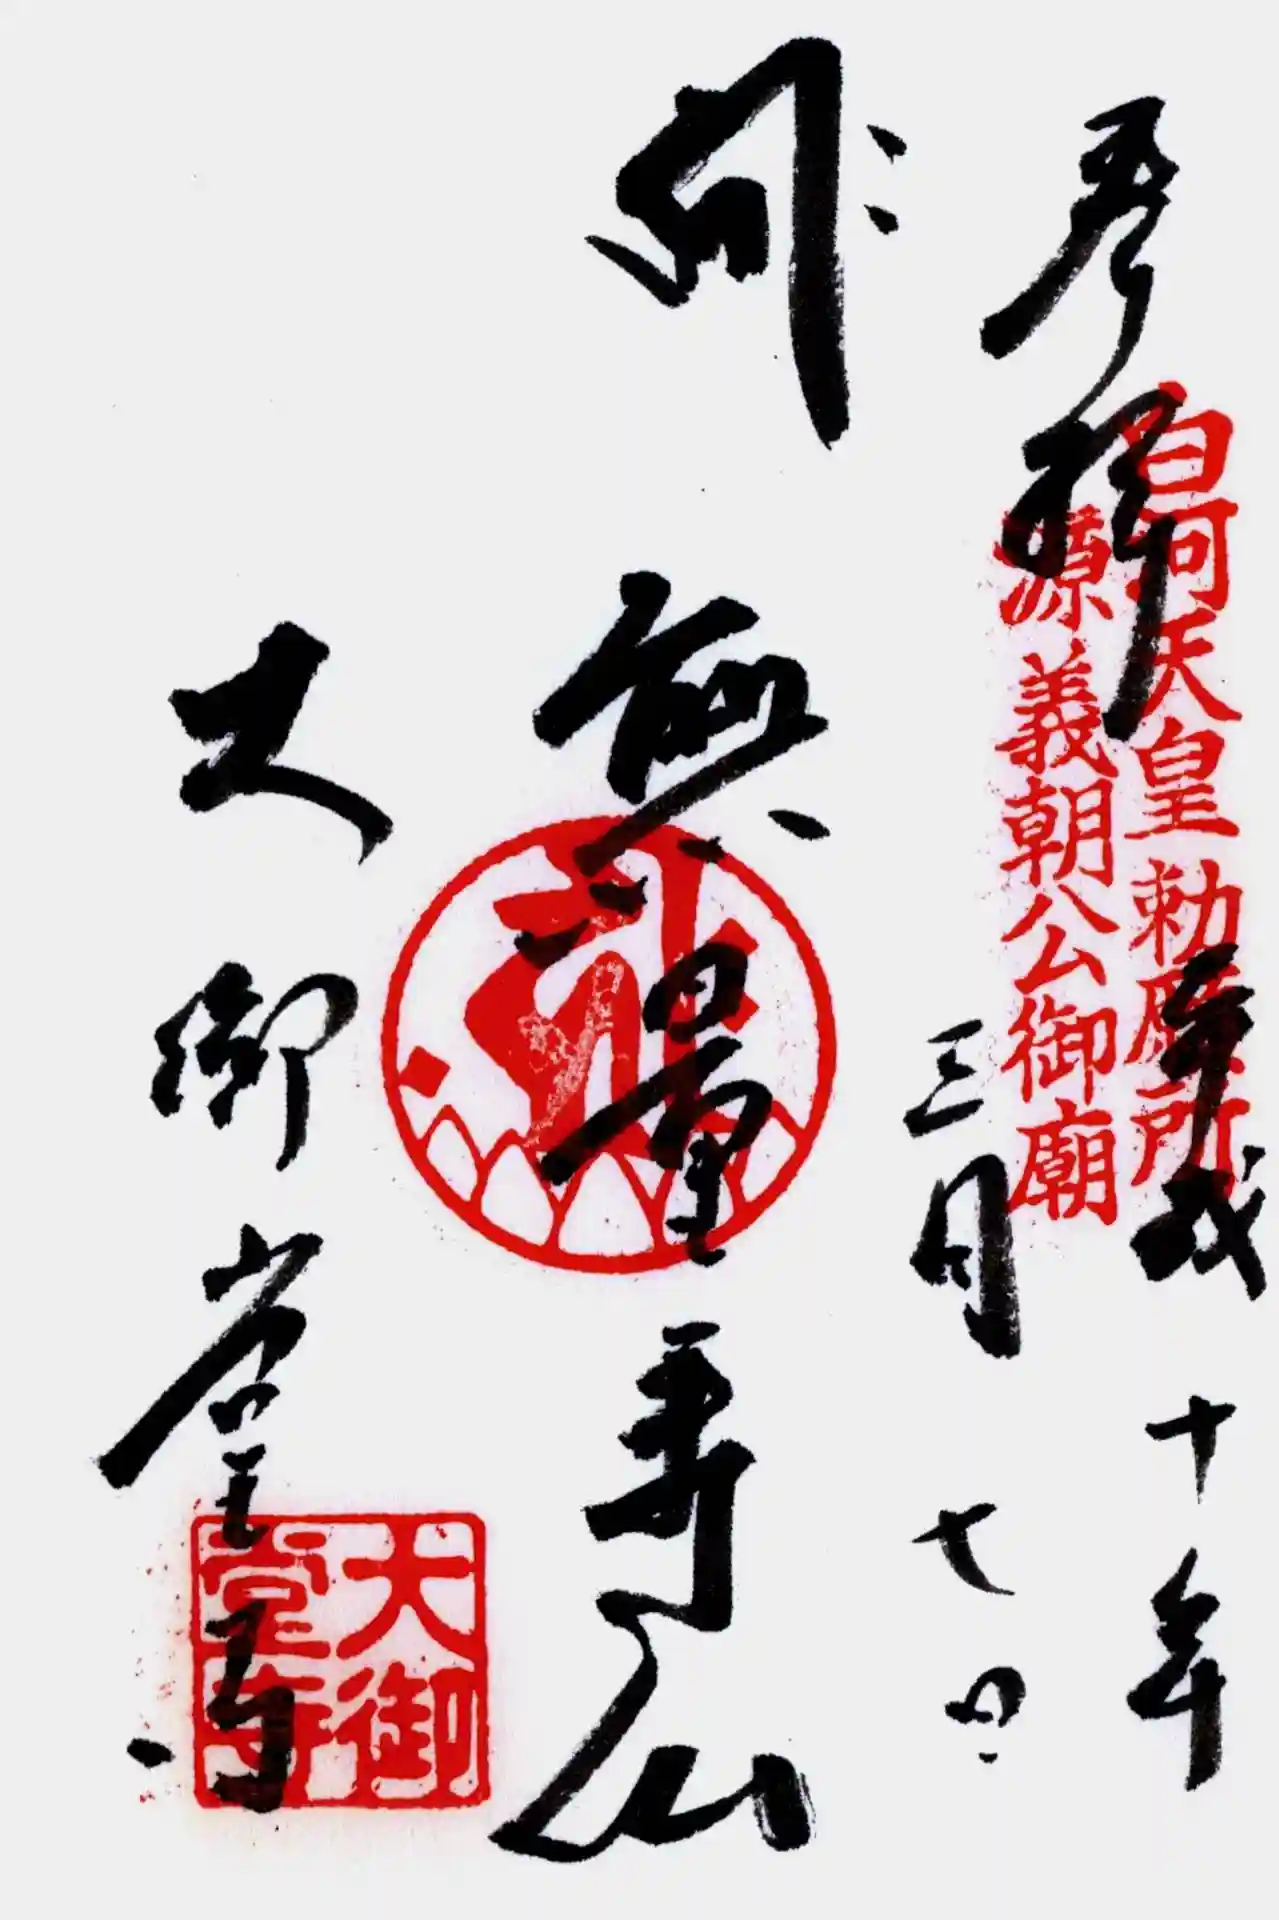 奉拝
白河天皇勅願所
源義朝公御廟
平成十年
三月七日
無量寿仏
大御堂寺
大御
堂寺